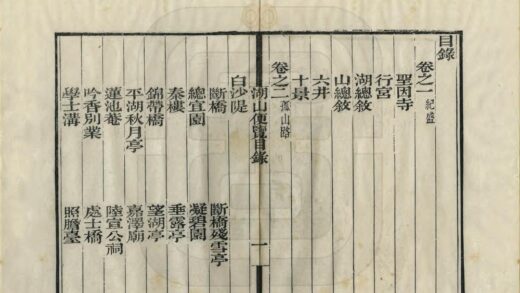 目錄
卷之一 紀盛
聖因寺
行宮
湖總敘
山總敘
六井
十景
卷之二 孤山路
湖山便覽目錄 一
白沙隄
斷橋 斷橋殘雪亭
總宜園 凝碧園
秦樓 垂露亭
錦帶橋 望湖亭
平湖秋月亭 嘉澤廟
蓮池庵 陸宣公祠
吟香別業 處士橋
學士溝 照膽臺